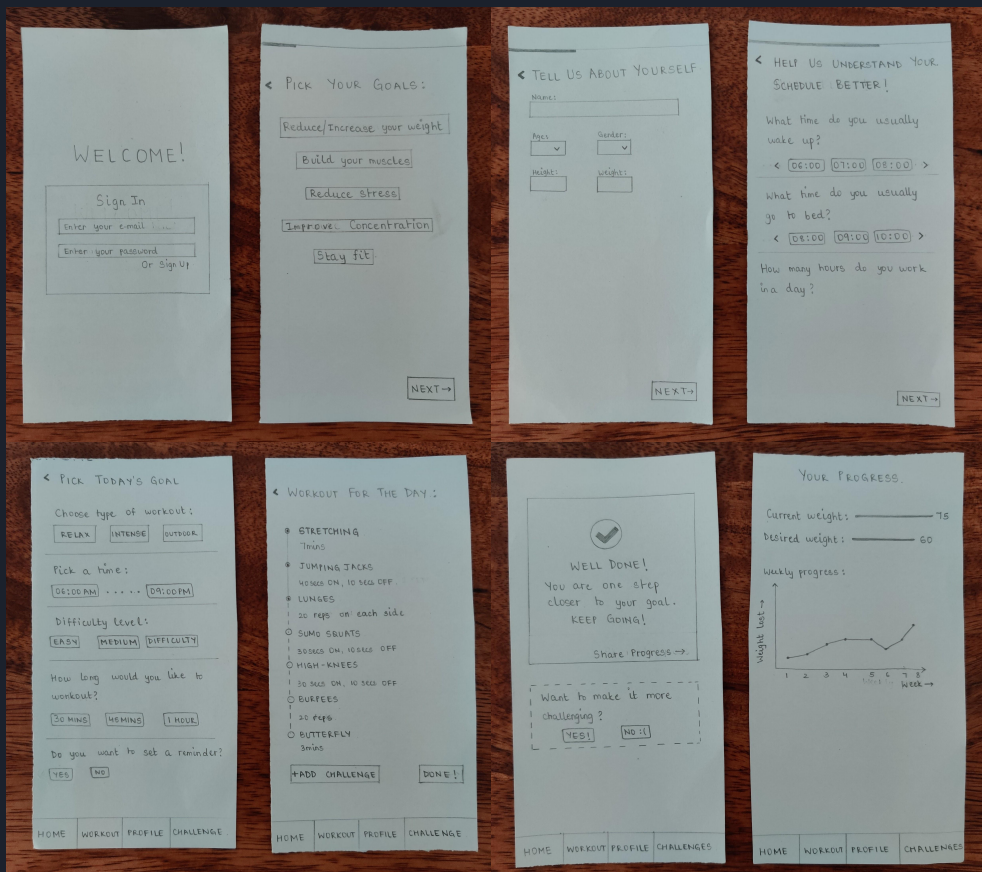 WELCOME!
Sign In
Enter your e-mail
Enter your password
Or Sign Up
< PICK YOUR GOALS:
Reduce/Increase your weight
Build your muscles
Reduce stress
Improve Concentration
Stay fit
NEXT→
< TELL US ABOUT YOURSELF
Name:
Age:
Gender:
Height:
Weight:
NEXT→
< HELP US UNDERSTAND YOUR
SCHEDULE BETTER!
What time do you usually
wake up?
< 06:00 07:00 08:00 >
What time do you usually
go to bed?
< 08:00 09:00 10:00 >
How many hours do you work
in a day?
NEXT→
< PICK TODAY'S GOAL
Choose type of workout:
RELAX INTENSE OUTDOOR
Pick a time:
06:00 AM ..... 09:00 PM
Difficulty Level:
EASY MEDIUM DIFFICULTY
How long would you like to
workout?
30 MINS 45 MINS 1 HOUR
Do you want to set a reminder?
YES NO
HOME WORKOUT PROFILE CHALLENGE
< WORKOUT FOR THE DAY:
STRETCHING
7mins
JUMPING JACKS
40 SECS ON, 10 SECS OFF
LUNGES
20 reps on each side
SUMO SQUATS
50 SECS ON, 10 SECS OFF
HIGH-KNEES
30 SECS ON, 10 SECS OFF
BURPEES
20 reps
BUTTERFLY
3mins
+ADD CHALLENGE DONE!
HOME WORKOUT PROFILE CHALLENGE
WELL DONE!
You are one step
closer to your goal.
KEEP GOING!
Share Progress →
Want to make it more
challenging?
YES! NO :(
HOME WORKOUT PROFILE CHALLENGES
YOUR PROGRESS
Current weight: 75
Desired weight: 60
Weekly progress:
Weight Lost →
1 2 3 4 5 6 7 8
Week →
HOME WORKOUT PROFILE CHALLENGES